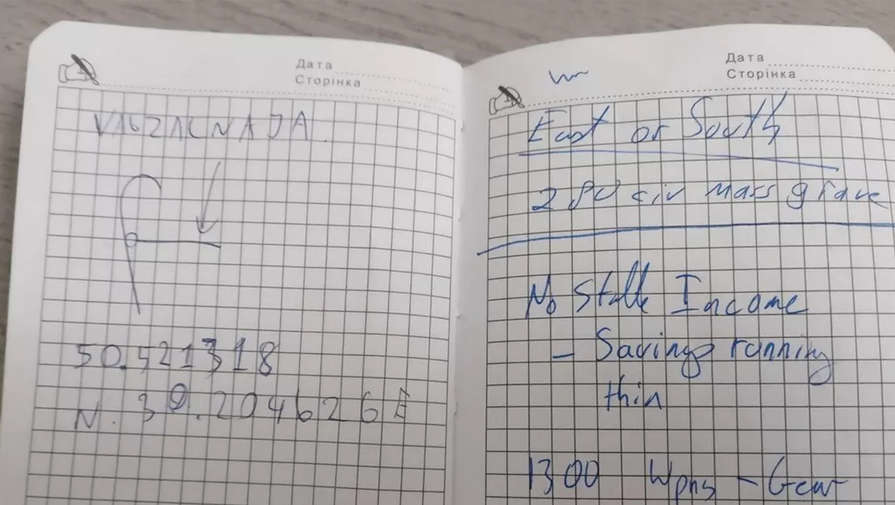 Дата
Сторінка
50.521318
N. 30.204626E
Дата
Сторінка
East or South
280 civ mass grave
No Stable Income
- Savings running
thin
1300 Wpns - Gear